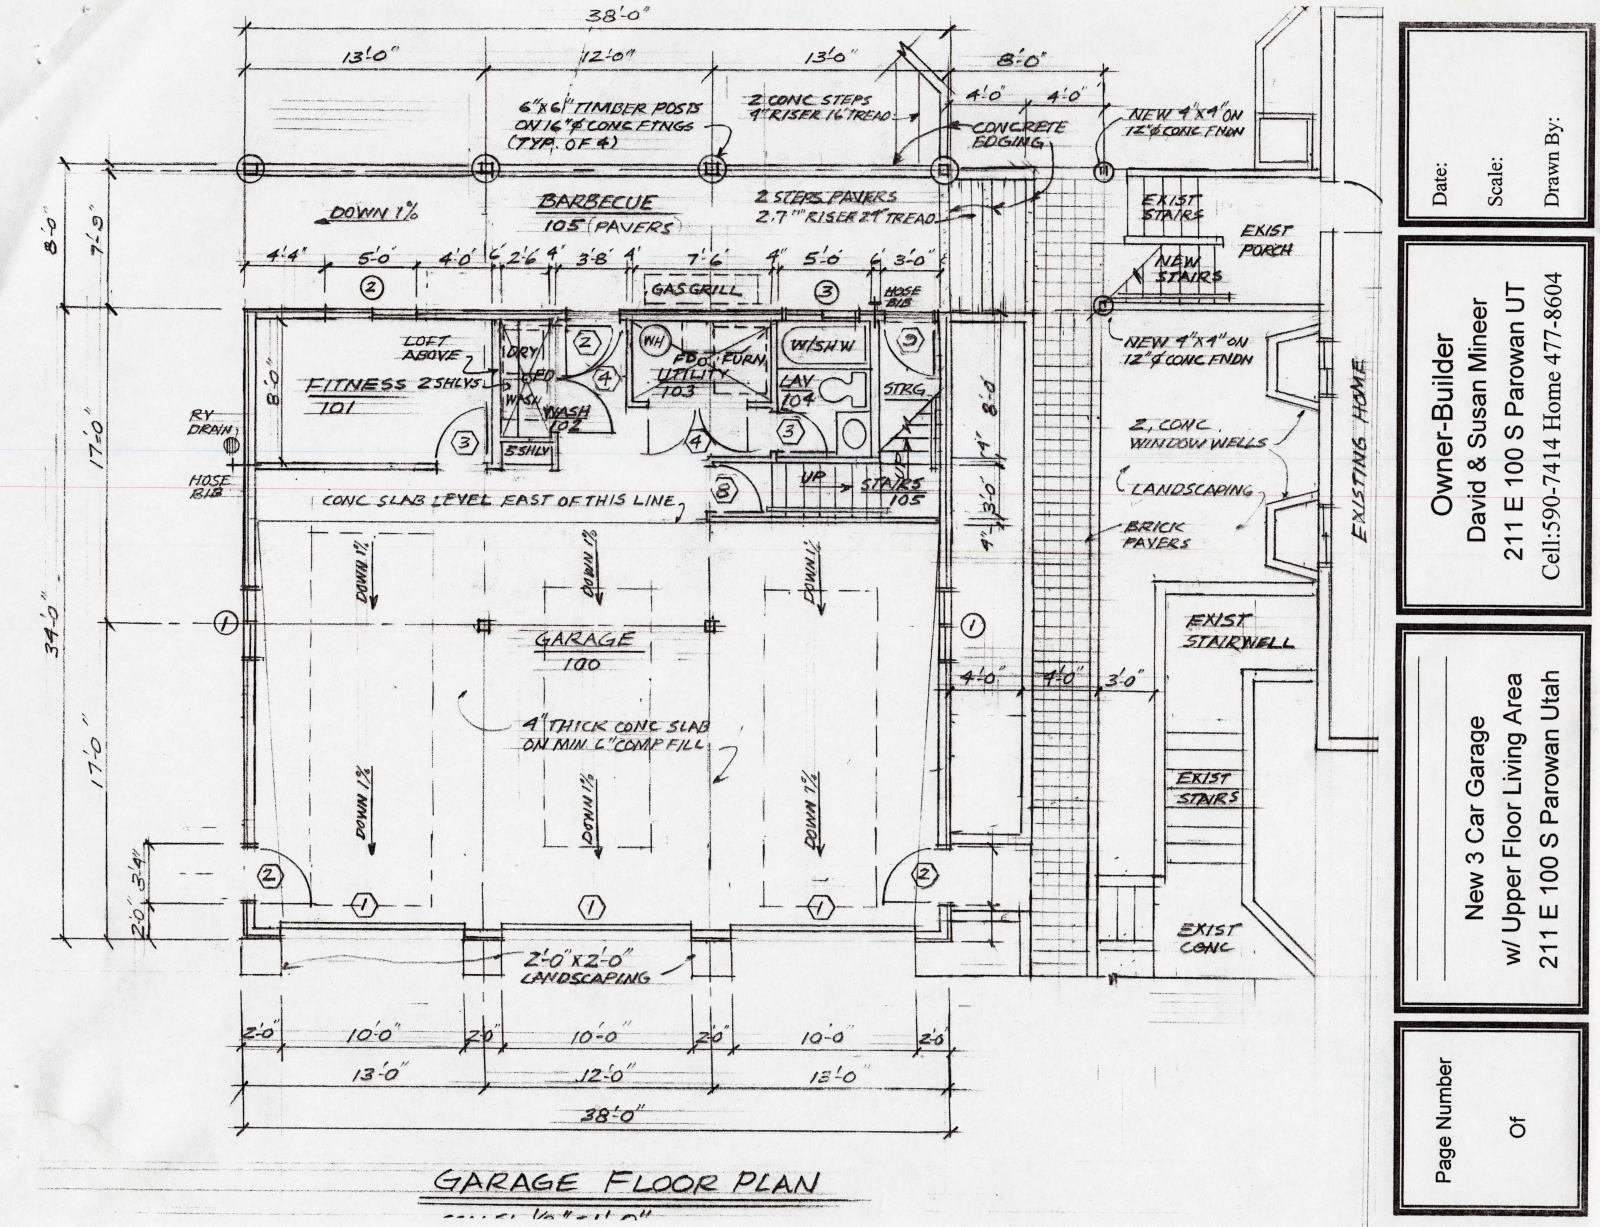 38'-0"
13'-0"
12'-0"
13'-0"
8'-0"
4'-0"
4'-0"
6"x6" TIMBER POSTS
ON 16"ø CONC FTNGS
(TYP. OF 4)
2 CONC STEPS
4" RISER 16" TREAD
CONCRETE
EDGING
NEW 4"x4" ON
12"ø CONC FNDN
8'-0"
7'-9"
DOWN 1%
BARBECUE
105 (PAVERS)
2 STEPS PAVERS
2.7" RISER 24" TREAD
EXIST
STAIRS
EXIST
PORCH
NEW
STAIRS
4'-4"
5'-0"
4'-0"
6"
2'-6"
4"
3'-8"
4"
7'-6"
4"
5'-0"
6"
3'-0"
2
GAS GRILL
3
HOSE
BIB
NEW 4"x4" ON
12"ø CONC FNDN
LOFT
ABOVE
DRY
2
WH
FD
FURN
W/SHW
9
FITNESS
101
8'-0"
2 SHLVS
FD
WASH
WASH
102
5 SHLV
4
UTILITY
103
LAV
104
STRG
8'-0"
3
4
3
RV
DRAIN
HOSE
BIB
17'-0"
CONC SLAB LEVEL EAST OF THIS LINE
8
UP
UP
STAIRS
105
4"
3'-0"
4"
2, CONC.
WINDOW WELLS
LANDSCAPING
BRICK
PAVERS
EXISTING HOME
DOWN 1%
DOWN 1%
DOWN 1%
34'-0"
1
GARAGE
100
1
EXIST
STAIRWELL
4'-0"
4'-0"
3'-0"
4" THICK CONC SLAB
ON MIN. 6" COMP FILL
17'-0"
DOWN 1%
DOWN 1%
DOWN 1%
EXIST
STAIRS
3'-4"
2'-0"
2
1
1
1
2
EXIST
CONC
2'-0" x 2'-0"
LANDSCAPING
2'-0"
10'-0"
2'-0"
10'-0"
2'-0"
10'-0"
2'-0"
13'-0"
12'-0"
13'-0"
38'-0"
GARAGE FLOOR PLAN
Date:
Scale:
Drawn By:
Owner-Builder
David & Susan Mineer
211 E 100 S Parowan UT
Cell:590-7414 Home 477-8604
New 3 Car Garage
w/ Upper Floor Living Area
211 E 100 S Parowan Utah
Page Number
Of